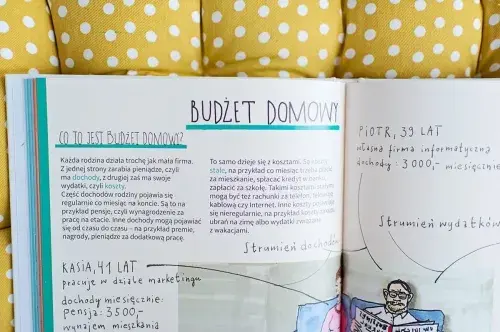 BUDŻET DOMOWY
CO TO JEST BUDŻET DOMOWY?
Każda rodzina działa trochę jak mała firma.
Z jednej strony zarabia pieniądze, czyli
ma dochody, z drugiej zaś ma swoje
wydatki, czyli koszty.
Część dochodów rodziny pojawia się
regularnie co miesiąc na koncie. Są to na
przykład pensje, czyli wynagrodzenie za
pracę na etacie. Inne dochody mogą pojawiać
się od czasu do czasu – na przykład premie,
nagrody, pieniądze za dodatkową pracę.
To samo dzieje się z kosztami. Są koszty
stałe, na przykład co miesiąc trzeba
za mieszkanie, spłacać kredyt w banku,
zapłacić za szkołę. Takimi kosztami
mogą być też rachunki za telefon,
kablową czy internet. Inne koszty
się nieregularnie, na przykład koszty
ubrań na zimę albo wydatki związane
z wakacjami.
Strumień dochodów
KASIA, 41 LAT
pracuje w dziale marketingu
dochody miesięcznie:
pensja: 3500,-
wynajem mieszkania
PIOTR, 39 LAT
własna firma informatyczna
dochody: 3000,- miesięcznie
Strumień wydatków